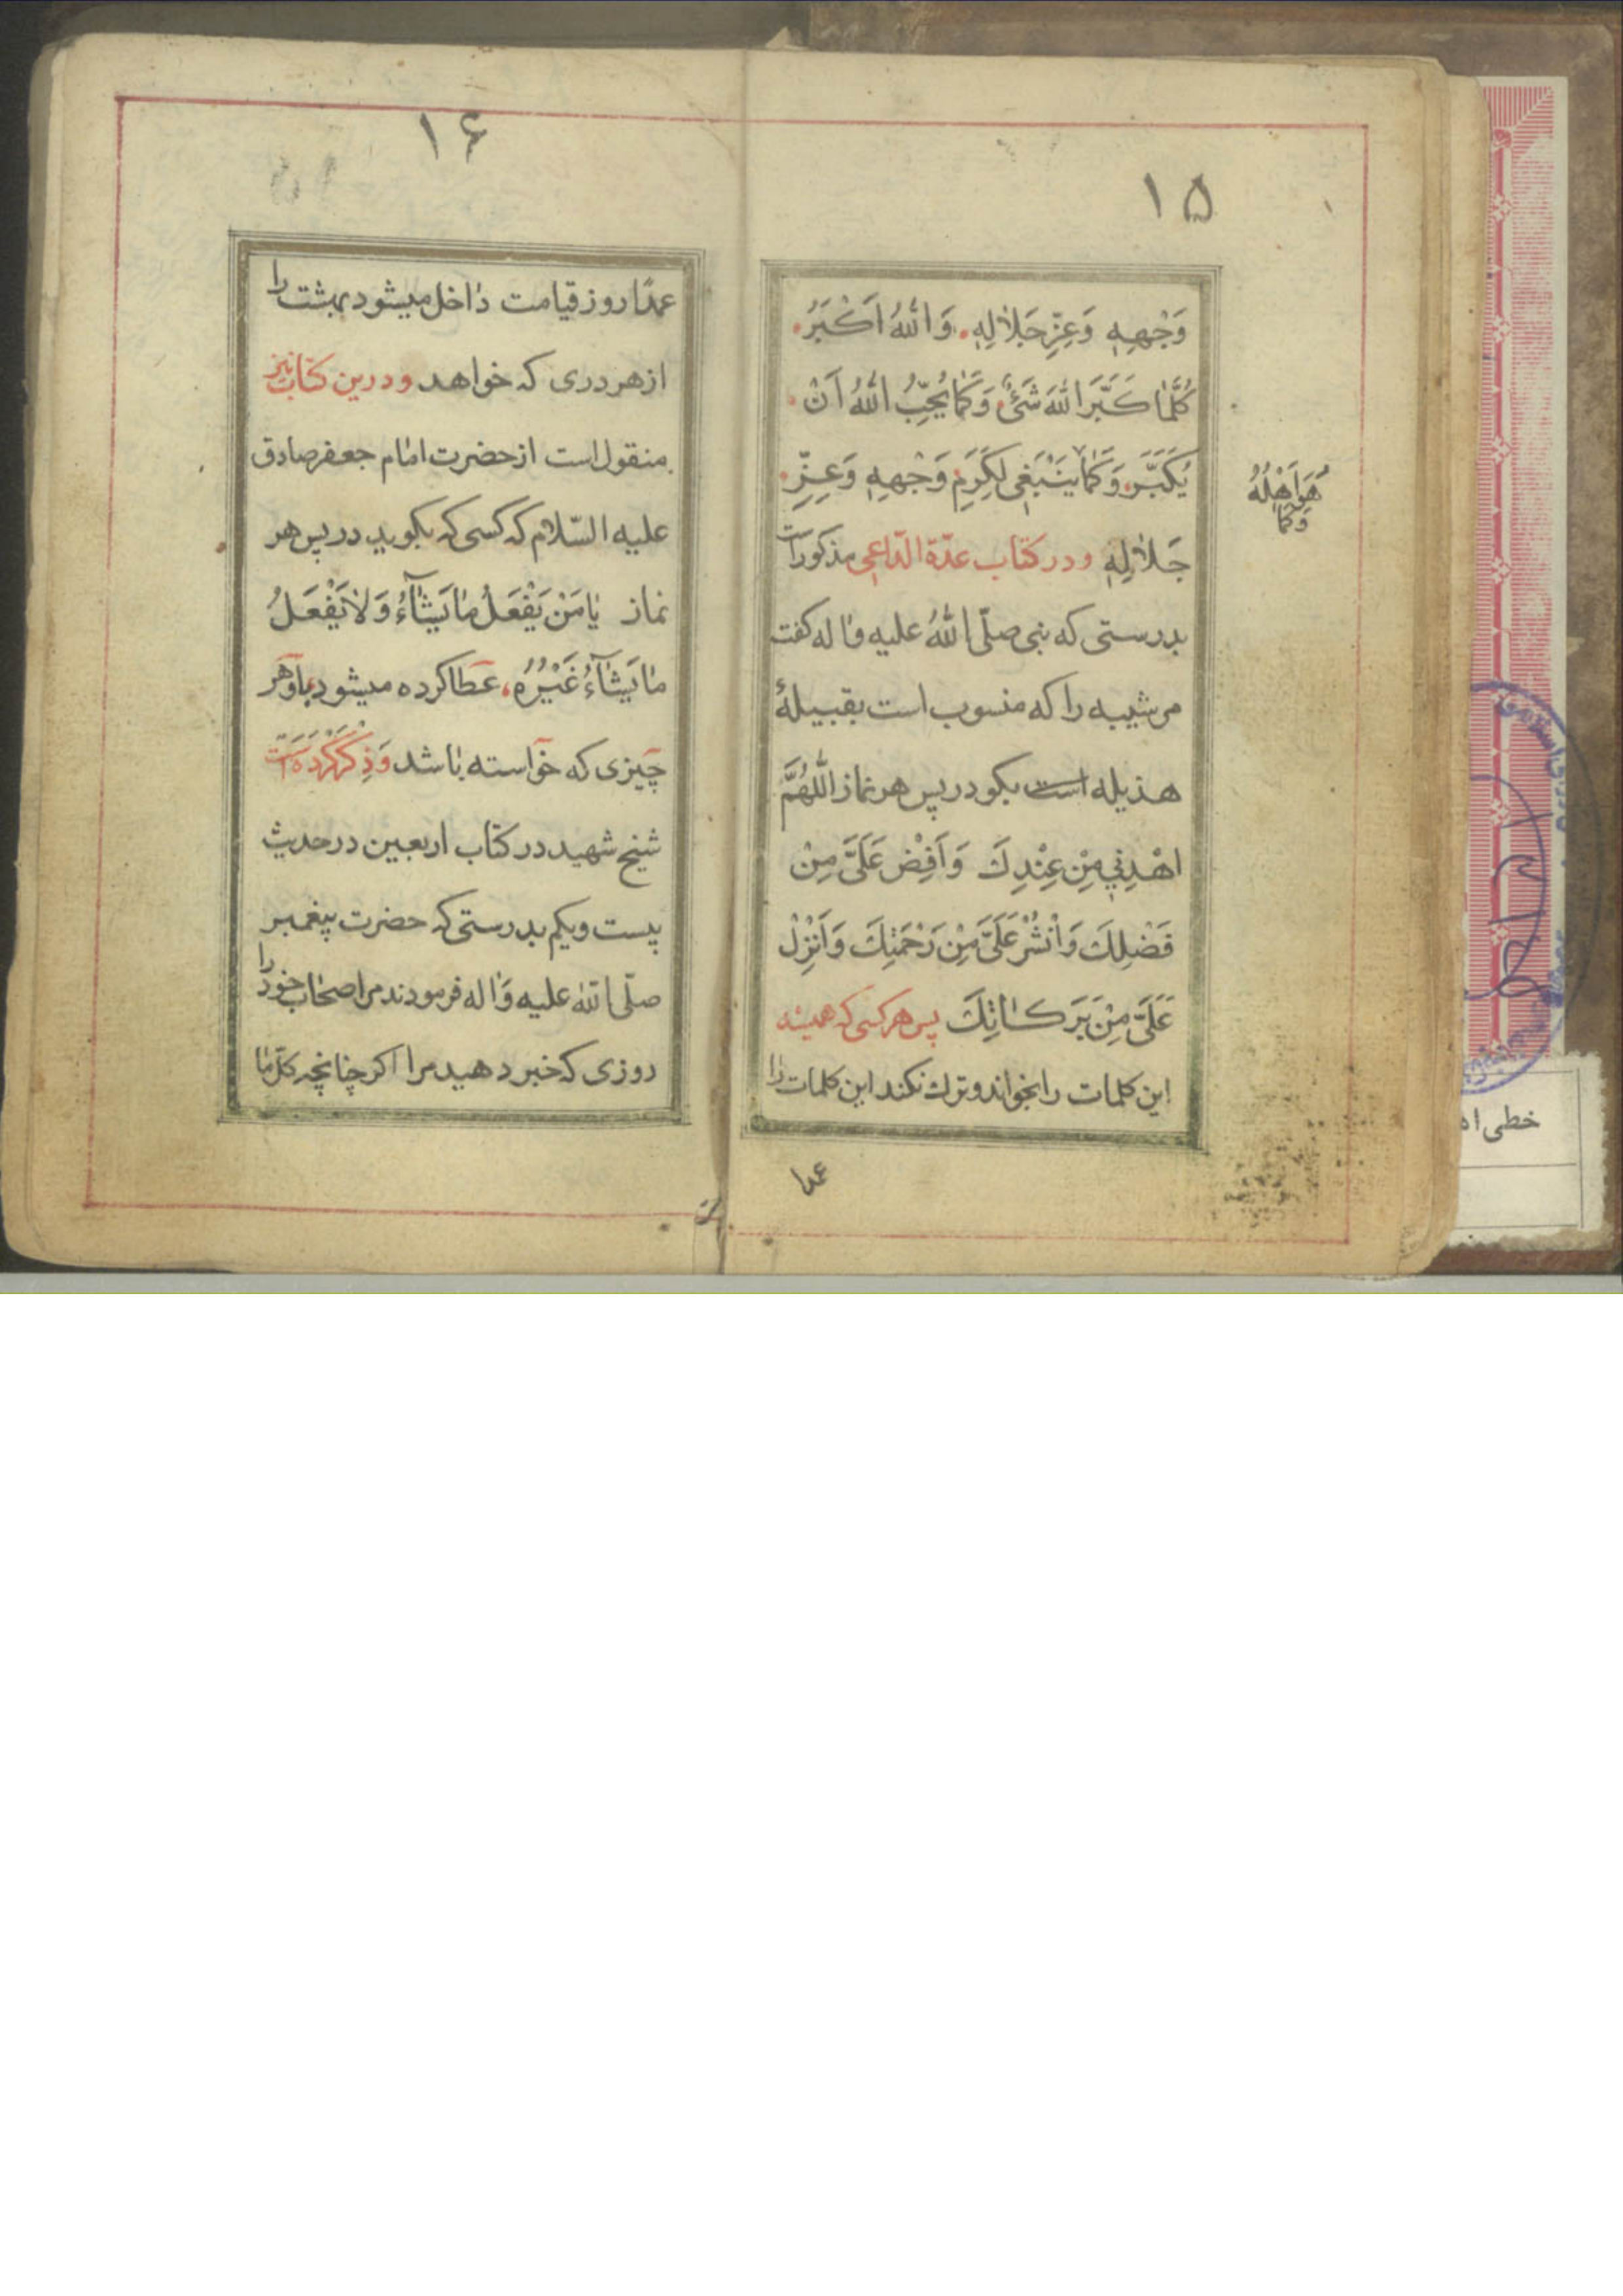 ۱۵
وَجْهِهِ وَعِزِّ جَلَالِهِ وَاللّٰهُ اَكْبَرُ
كُلَّمَا كَبَّرَ اللّٰهَ شَیْءٌ وَكَمَا يُحِبُّ اللّٰهُ اَنْ
يُكَبَّرَ وَكَمَا يَنْبَغِي لِكَرَمِ وَجْهِهِ وَعِزِّ
هُوَ اَهْلُهُ
وَكَمَا
جَلَالِهِ ودر كتاب عدّة الدّاعی مذکور است
بدرستی که نبی صلّی اللّٰهُ علیه واله کفت
مر شیبه را که منسوب است بقبیلهٔ
هذیله است بکو در پس هر نماز اَللّٰهُمَّ
اهْدِنِي مِنْ عِنْدِكَ وَاَفِضْ عَلَيَّ مِنْ
فَضْلِكَ وَانْشُرْ عَلَيَّ مِنْ رَحْمَتِكَ وَاَنْزِلْ
عَلَيَّ مِنْ بَرَكَاتِكَ پس هر کسی که همیشه
این کلمات را بخواند و ترك نکند این کلمات را
عمدا
۱۶
عمدًا روز قیامت داخل میشود بهشت را
از هر دری که خواهد ودرین کتاب نیز
منقول است از حضرت امام جعفر صادق
علیه السّلام که کسی که بکوید در پس هر
نماز يَا مَنْ يَفْعَلُ مَا يَشَآءُ وَلَا يَفْعَلُ
مَا يَشَآءُ غَيْرُهُ عطا کرده میشود باو هر
چیزی که خواسته باشد وذکر کرده است
شیخ شهید در کتاب اربعین در حدیث
بیست ویکم بدرستی که حضرت پیغمبر
صلّی اللّٰه علیه واله فرمودند مر اصحاب خود را
روزی که خبر دهید مرا اکر چنانچه کلّ ما
خطی اه